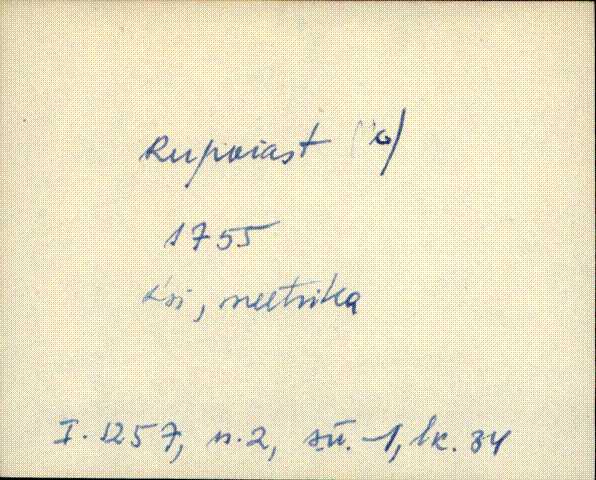 Rupoiast (o)
1755
Ksi, meetrika
I. 1257, n. 2, sü. -1, lk. 34